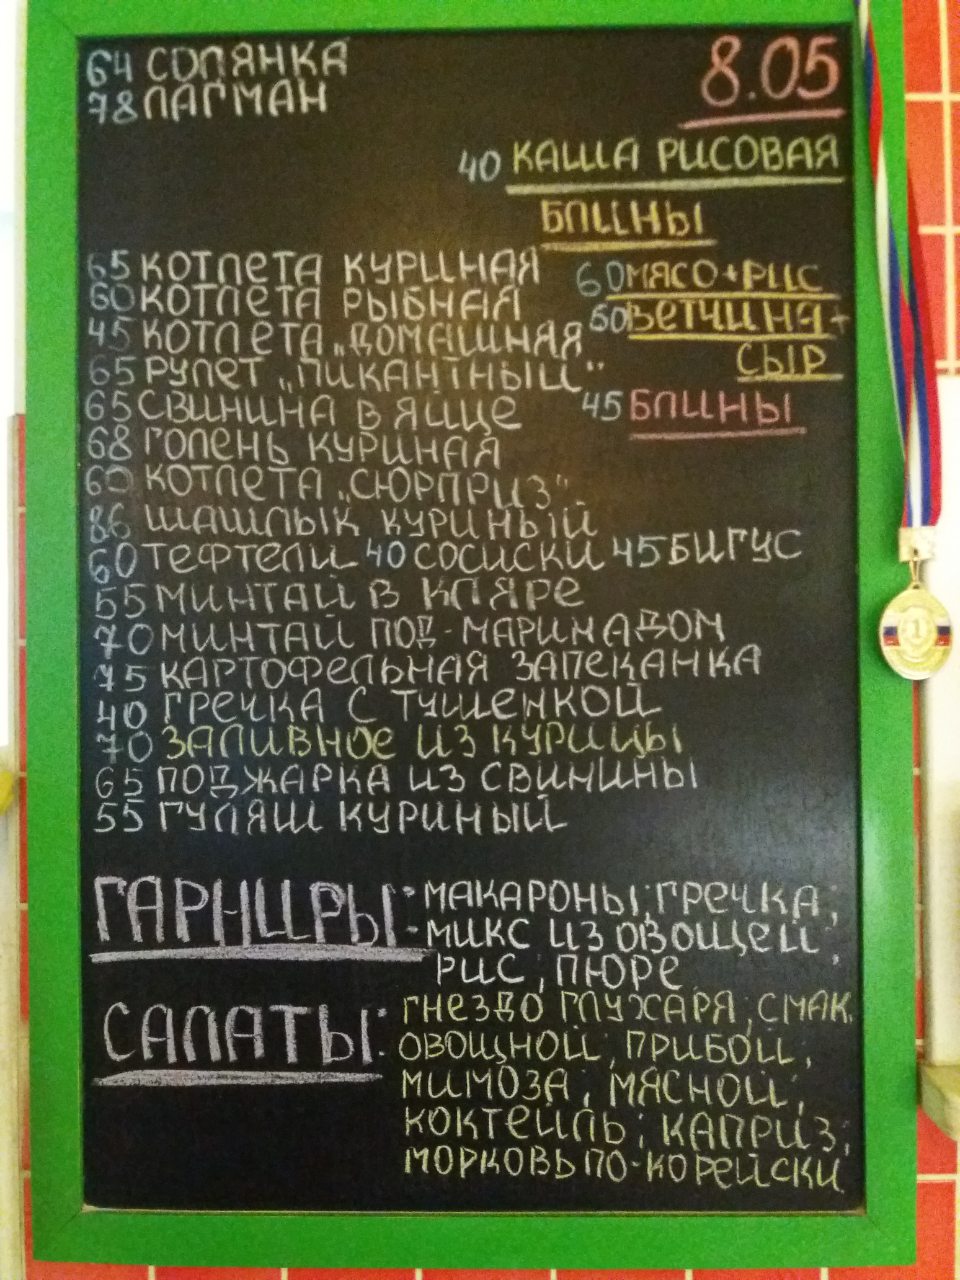 64 СОЛЯНКА
8.05
78 ЛАГМАН
40 КАША РИСОВАЯ
БЛИНЫ
65 КОТЛЕТА КУРИНАЯ
60 МЯСО+РИС
60 КОТЛЕТА РЫБНАЯ
60 ВЕТЧИНА+
45 КОТЛЕТА „ДОМАШНЯЯ
СЫР
65 РУЛЕТ „ПИКАНТНЫЙ"
65 СВИНИНА В ЯЙЦЕ
45 БЛИНЫ
68 ГОЛЕНЬ КУРИНАЯ
60 КОТЛЕТА „СЮРПРИЗ"
86 ШАШЛЫК КУРИНЫЙ
60 ТЕФТЕЛИ 40 СОСИСКИ 45 БИГУС
55 МИНТАЙ В КЛЯРЕ
70 МИНТАЙ ПОД МАРИНАДОМ
75 КАРТОФЕЛЬНАЯ ЗАПЕКАНКА
40 ГРЕЧКА С ТУШЕНКОЙ
70 ЗАЛИВНОЕ ИЗ КУРИЦЫ
65 ПОДЖАРКА ИЗ СВИНИНЫ
55 ГУЛЯШ КУРИНЫЙ
ГАРНИРЫ: МАКАРОНЫ; ГРЕЧКА;
МИКС ИЗ ОВОЩЕЙ;
РИС; ПЮРЕ
САЛАТЫ: ГНЕЗДО ГЛУХАРЯ; СМАК
ОВОЩНОЙ; ПРИБОЙ;
МИМОЗА; МЯСНОЙ;
КОКТЕЙЛЬ; КАПРИЗ;
МОРКОВЬ ПО-КОРЕЙСКИ
1